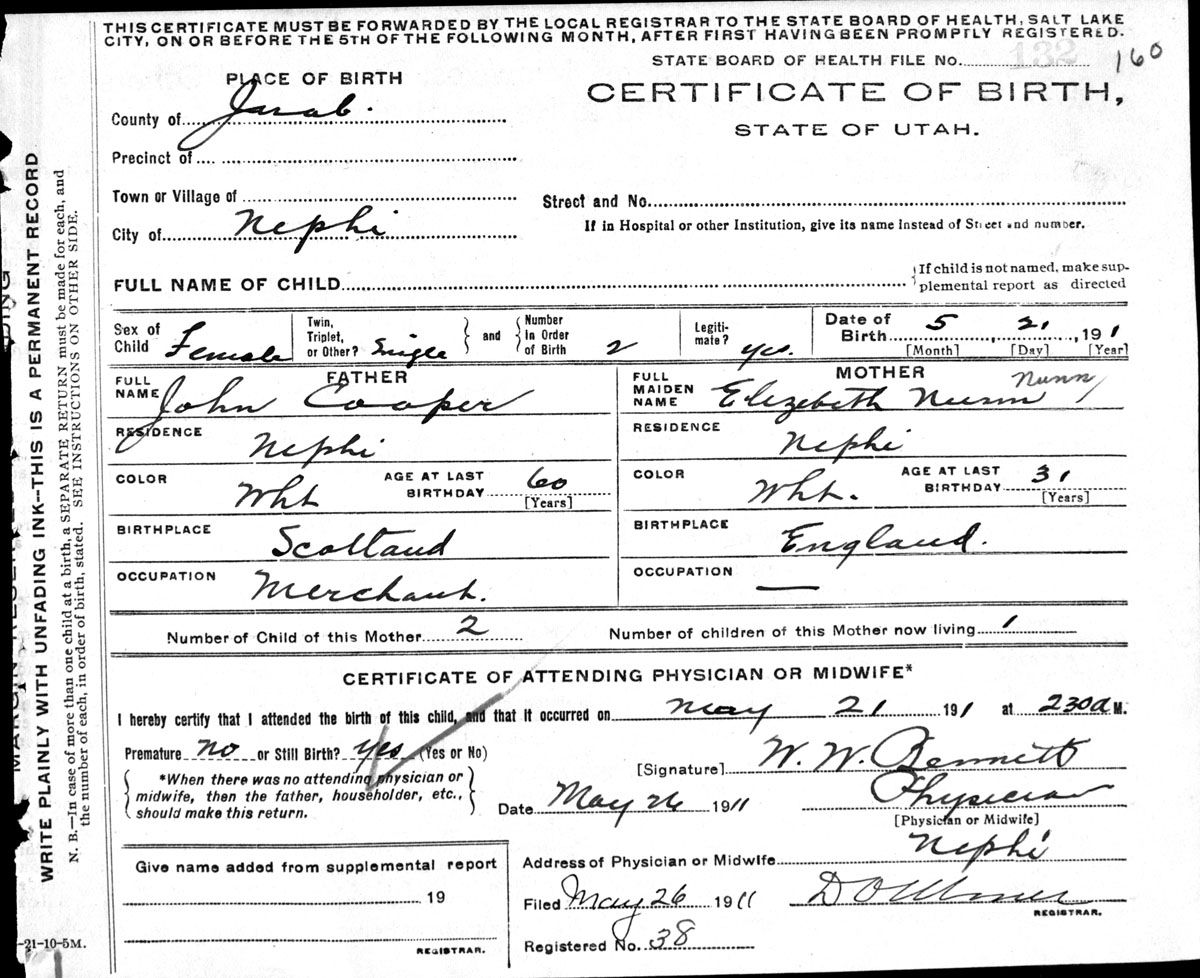 THIS CERTIFICATE MUST BE FORWARDED BY THE LOCAL REGISTRAR TO THE STATE BOARD OF HEALTH, SALT LAKE
CITY, ON OR BEFORE THE 5TH OF THE FOLLOWING MONTH, AFTER FIRST HAVING BEEN PROMPTLY REGISTERED.
STATE BOARD OF HEALTH FILE No. 132 160
PLACE OF BIRTH
CERTIFICATE OF BIRTH,
STATE OF UTAH.
County of Juab.
Precinct of
Town or Village of
Street and No.
City of Nephi
If in Hospital or other Institution, give its name instead of Street and number.
FULL NAME OF CHILD
If child is not named, make sup-
plemental report as directed
Sex of Child Female
Twin, Triplet, or Other? Single
and
Number in Order of Birth 2
Legiti-mate? yes.
Date of Birth 5, 21, 1911
[Month] [Day] [Year]
FATHER
FULL NAME John Cooper
RESIDENCE Nephi
COLOR Wht AGE AT LAST BIRTHDAY 60
[Years]
BIRTHPLACE Scotland
OCCUPATION Merchant.
MOTHER
FULL MAIDEN NAME Elizebeth Nunn Nunn
RESIDENCE Nephi
COLOR Wht. AGE AT LAST BIRTHDAY 31
[Years]
BIRTHPLACE England.
OCCUPATION —
Number of Child of this Mother 2 Number of children of this Mother now living 1
CERTIFICATE OF ATTENDING PHYSICIAN OR MIDWIFE*
I hereby certify that I attended the birth of this child, and that it occurred on May 21 1911 at 230a M.
Premature no or Still Birth? yes (Yes or No)
*When there was no attending physician or
midwife, then the father, householder, etc.,
should make this return.
[Signature] W. W. Bennett
Date May 26 1911 Physician
[Physician or Midwife]
Give name added from supplemental report
19
REGISTRAR.
Address of Physician or Midwife Nephi
Filed May 26 1911
REGISTRAR.
Registered No. 38
-21-10-5M.
WRITE PLAINLY WITH UNFADING INK--THIS IS A PERMANENT RECORD
N. B.—In case of more than one child at a birth, a SEPARATE RETURN must be made for each, and
the number of each, in order of birth, stated. SEE INSTRUCTION ON OTHER SIDE.